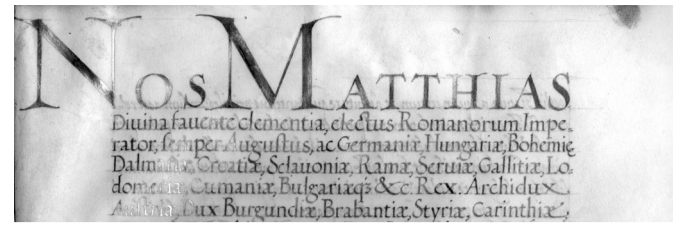 NOS MATTHIAS
Diuina fauente clementia, electus Romanorum Impe-
rator, semper Augustus, ac Germaniæ, Hungariæ, Bohemię
Dalmatiæ, Croatiæ, Sclauoniæ, Ramæ, Seruiæ, Gallitiæ, Lo-
domeriæ, Cumaniæ, Bulgariæq₃ &c. Rex. Archidux
Austriæ, Dux Burgundiæ, Brabantiæ, Styriæ, Carinthiæ,